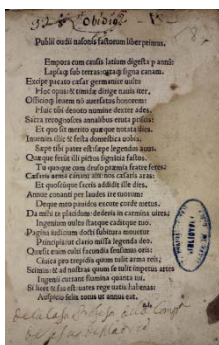 Publii ouidii nasonis fastorum liber primus.
Tempora cum causis latium digesta p annũ:
Lapsaq̃ sub terras ortaq̃ signa canam.
Excipe pacato cæsar germanice uultu
Hoc opus: & timidæ dirige nauis iter.
Officioq̃ leuem nõ auersatus honorem:
Huic tibi deuoto numine dexter ades.
Sacra recognosces annalibus eruta priscis:
Et quo sit merito quæque notata dies.
Inuenies illic & festa domestica uobis.
Sæpe tibi pater est: sæpe legendus auus.
Quæque ferũt illi pictos signãtia fastos.
Tu quoque cum druso præmia fratre feres.
Cæsaris arma canant alii: nos cæsaris aras:
Et quoscũque sacris addidit ille dies.
Annue conanti per laudes ire tuorum:
Deque meo pauidos excute corde metus.
Da mihi te placidum: dederis in carmina uires.
Ingenium uultu statque caditque tuo.
Pagina iudicium docti subitura mouetur
Principis: ut clario missa legenda deo.
Quæ sit enim culti facundia sensimus oris:
Ciuica pro trepidis quum tulit arma reis:
Scimus: & ad nostras quum se tulit impetus artes
Ingenii currant flumina quanta tui.
Si licet & fas est: uates rege uatis habenas:
Auspicio felix totus ut annus eat.